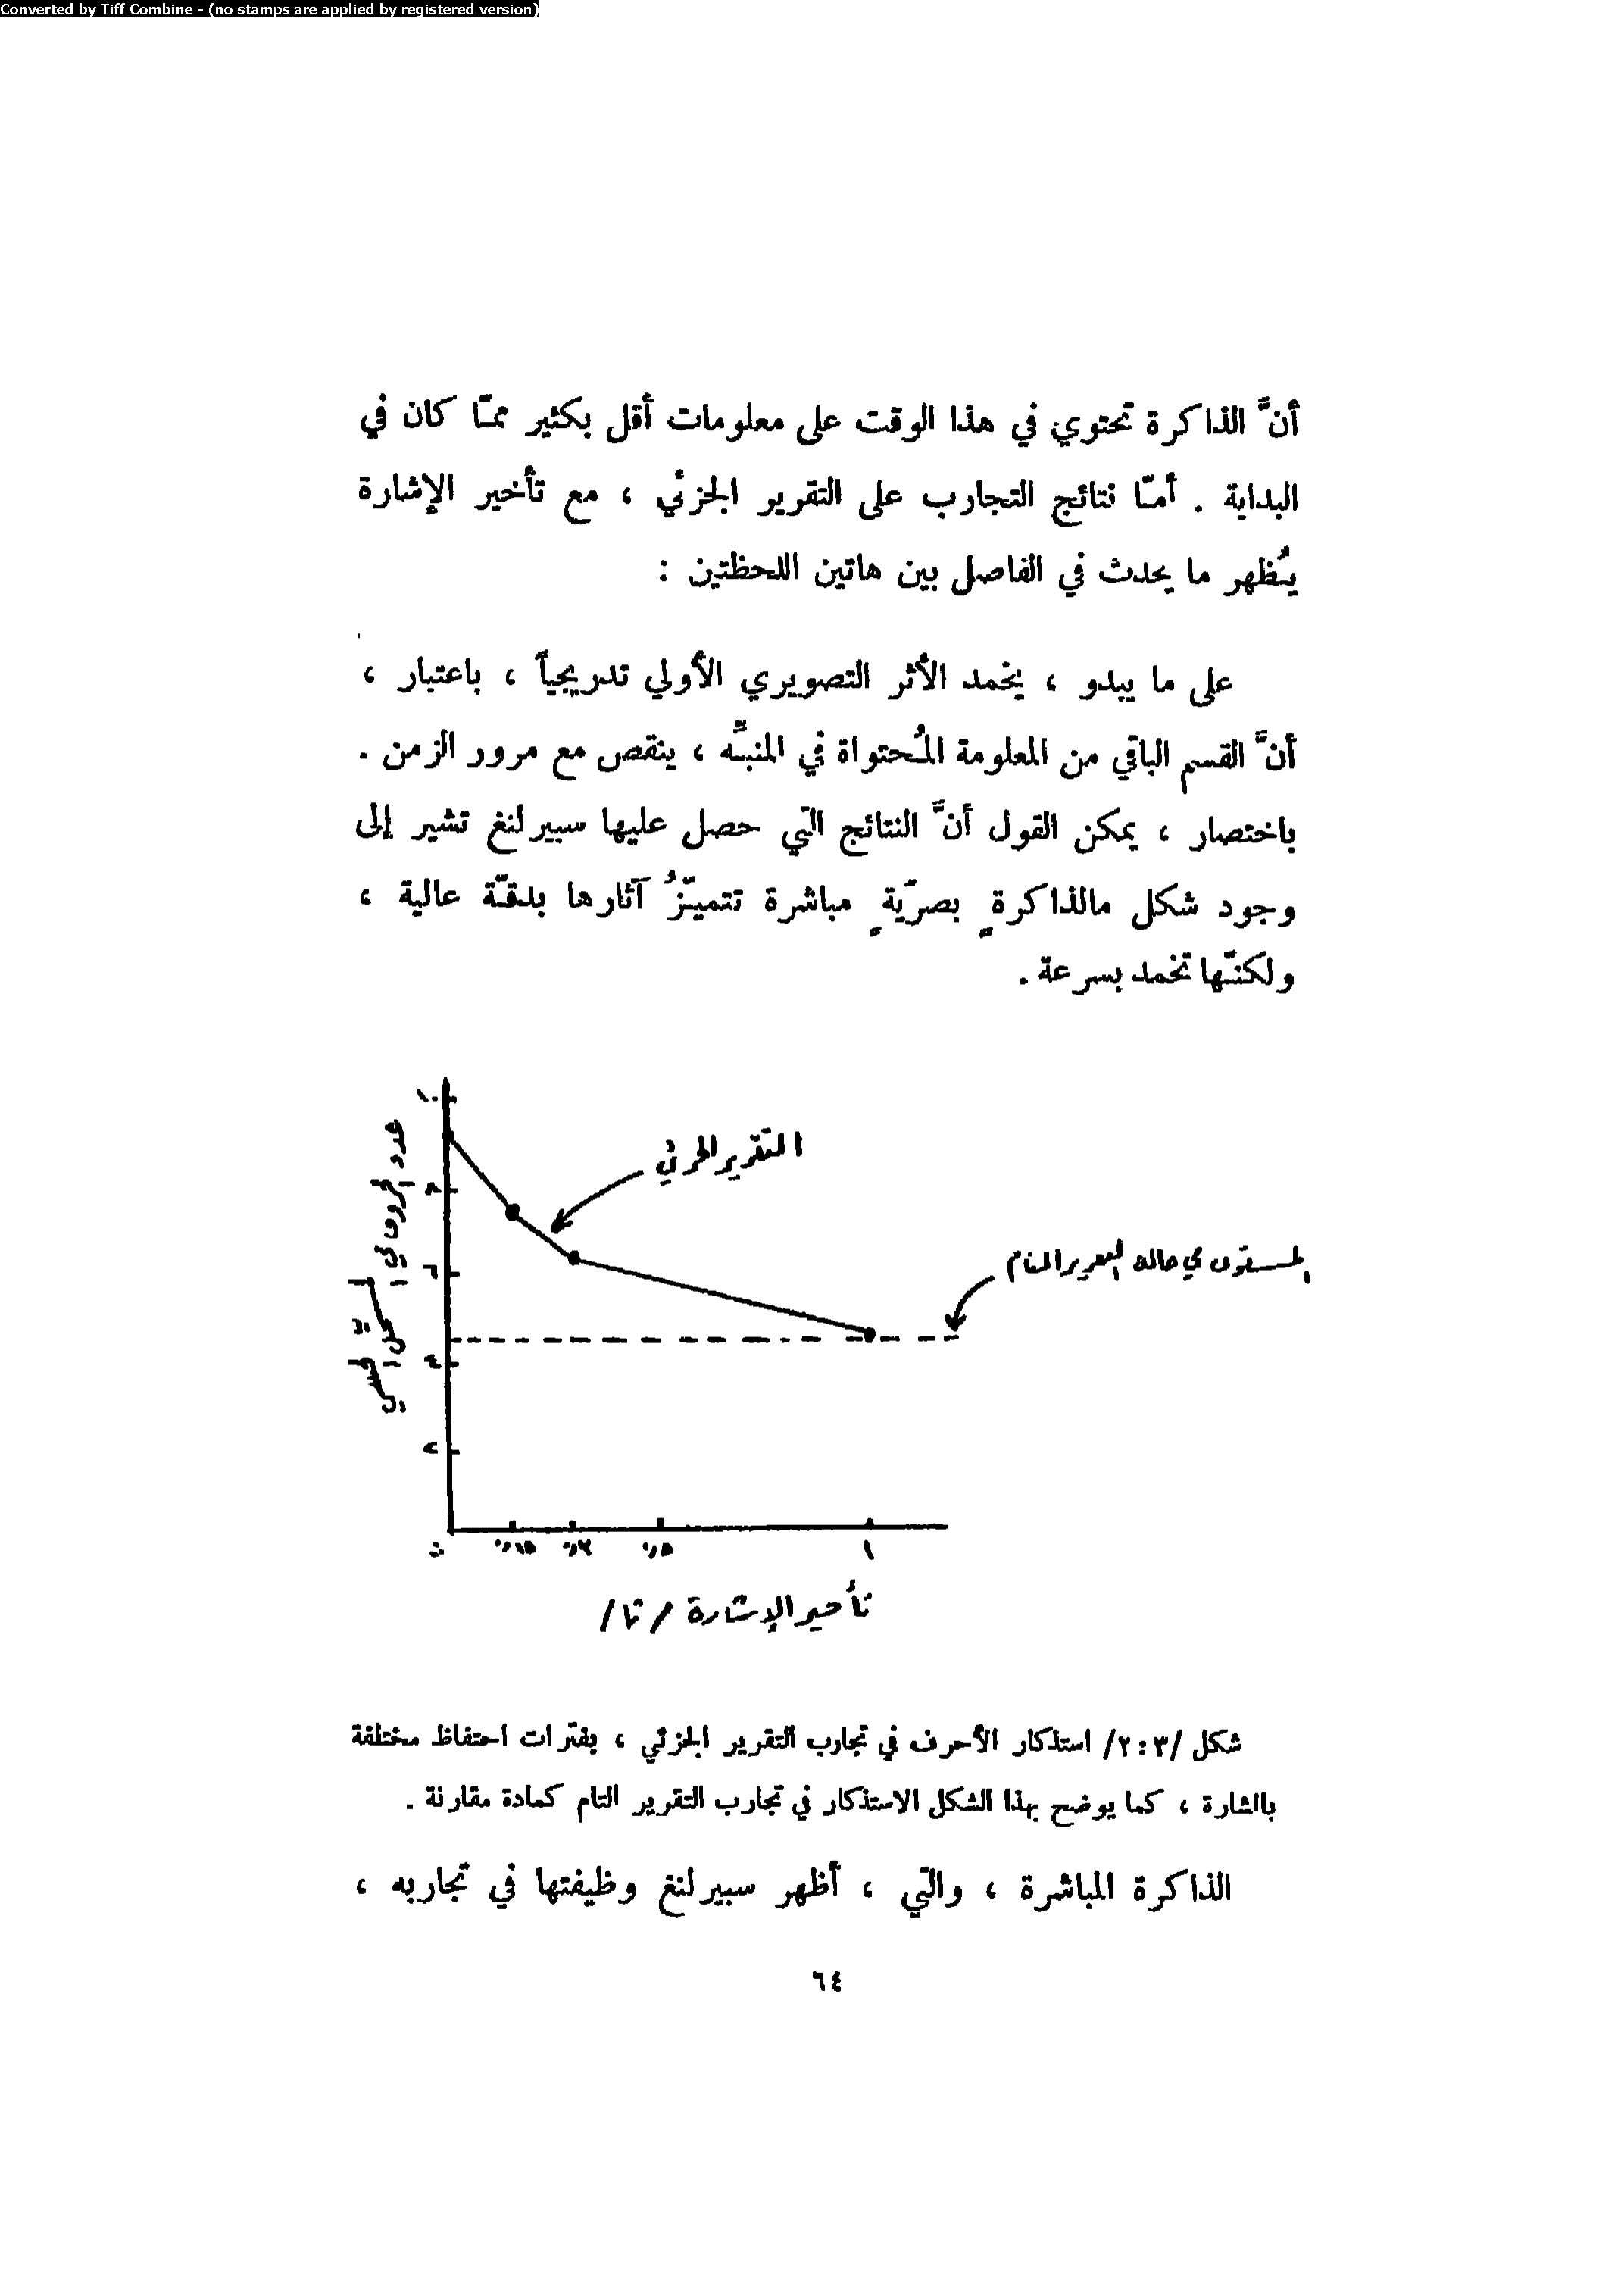 Converted by Tiff Combine - (no stamps are applied by registered version)
أنَّ الذاكرة تحتوي في هذا الوقت على معلومات أقل بكثير ممّا كان في
البداية . أمّا نتائج التجارب على التقرير الجزئي ، مع تأخير الإشارة
يُظهر ما يحدث في الفاصل بين هاتين اللحظتين :
على ما يبدو ، يخمد الأثر التصويري الأولي تدريجياً ، باعتبار ،
أنَّ القسم الباقي من المعلومة المُحتواة في المنبِّه ، ينقص مع مرور الزمن .
باختصار ، يمكن القول أنَّ النتائج التي حصل عليها سبيرلنغ تشير إلى
وجود شكل مالذاكرةٍ بصريّةٍ مباشرة تتميّزُ آثارها بدقّة عالية ،
ولكنّها تخمد بسرعة .
١٠
التقرير الجزئي
عدد الحروف في السجل الحسي
٨
المستوى في حالة التقرير التام
٦
٤
٢
٠٫١٥
٠٫٥
١
تأخير الإشارة / ثا /
شكل /٢:٣/ استذكار الأحرف في تجارب التقرير الجزئي ، بفترات احتفاظ مختلفة
باالشارة ، كما يوضح بهذا الشكل الاستذكار في تجارب التقرير التام كمادة مقارنة .
الذاكرة المباشرة ، والتي ، أظهر سبيرلنغ وظيفتها في تجاربه ،
٦٤